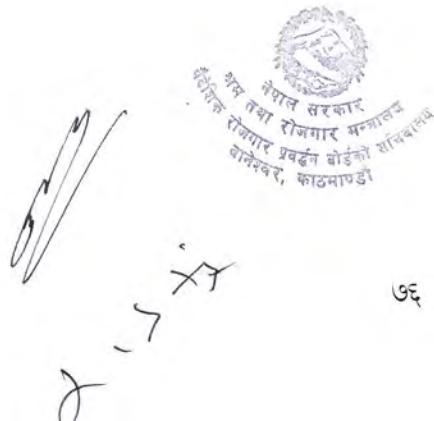 नेपाल सरकार
श्रम तथा रोजगार मन्त्रालय
वैदेशिक रोजगार प्रवर्द्धन बोर्डको सचिवालय
बानेश्वर, काठमाण्डौ
७६